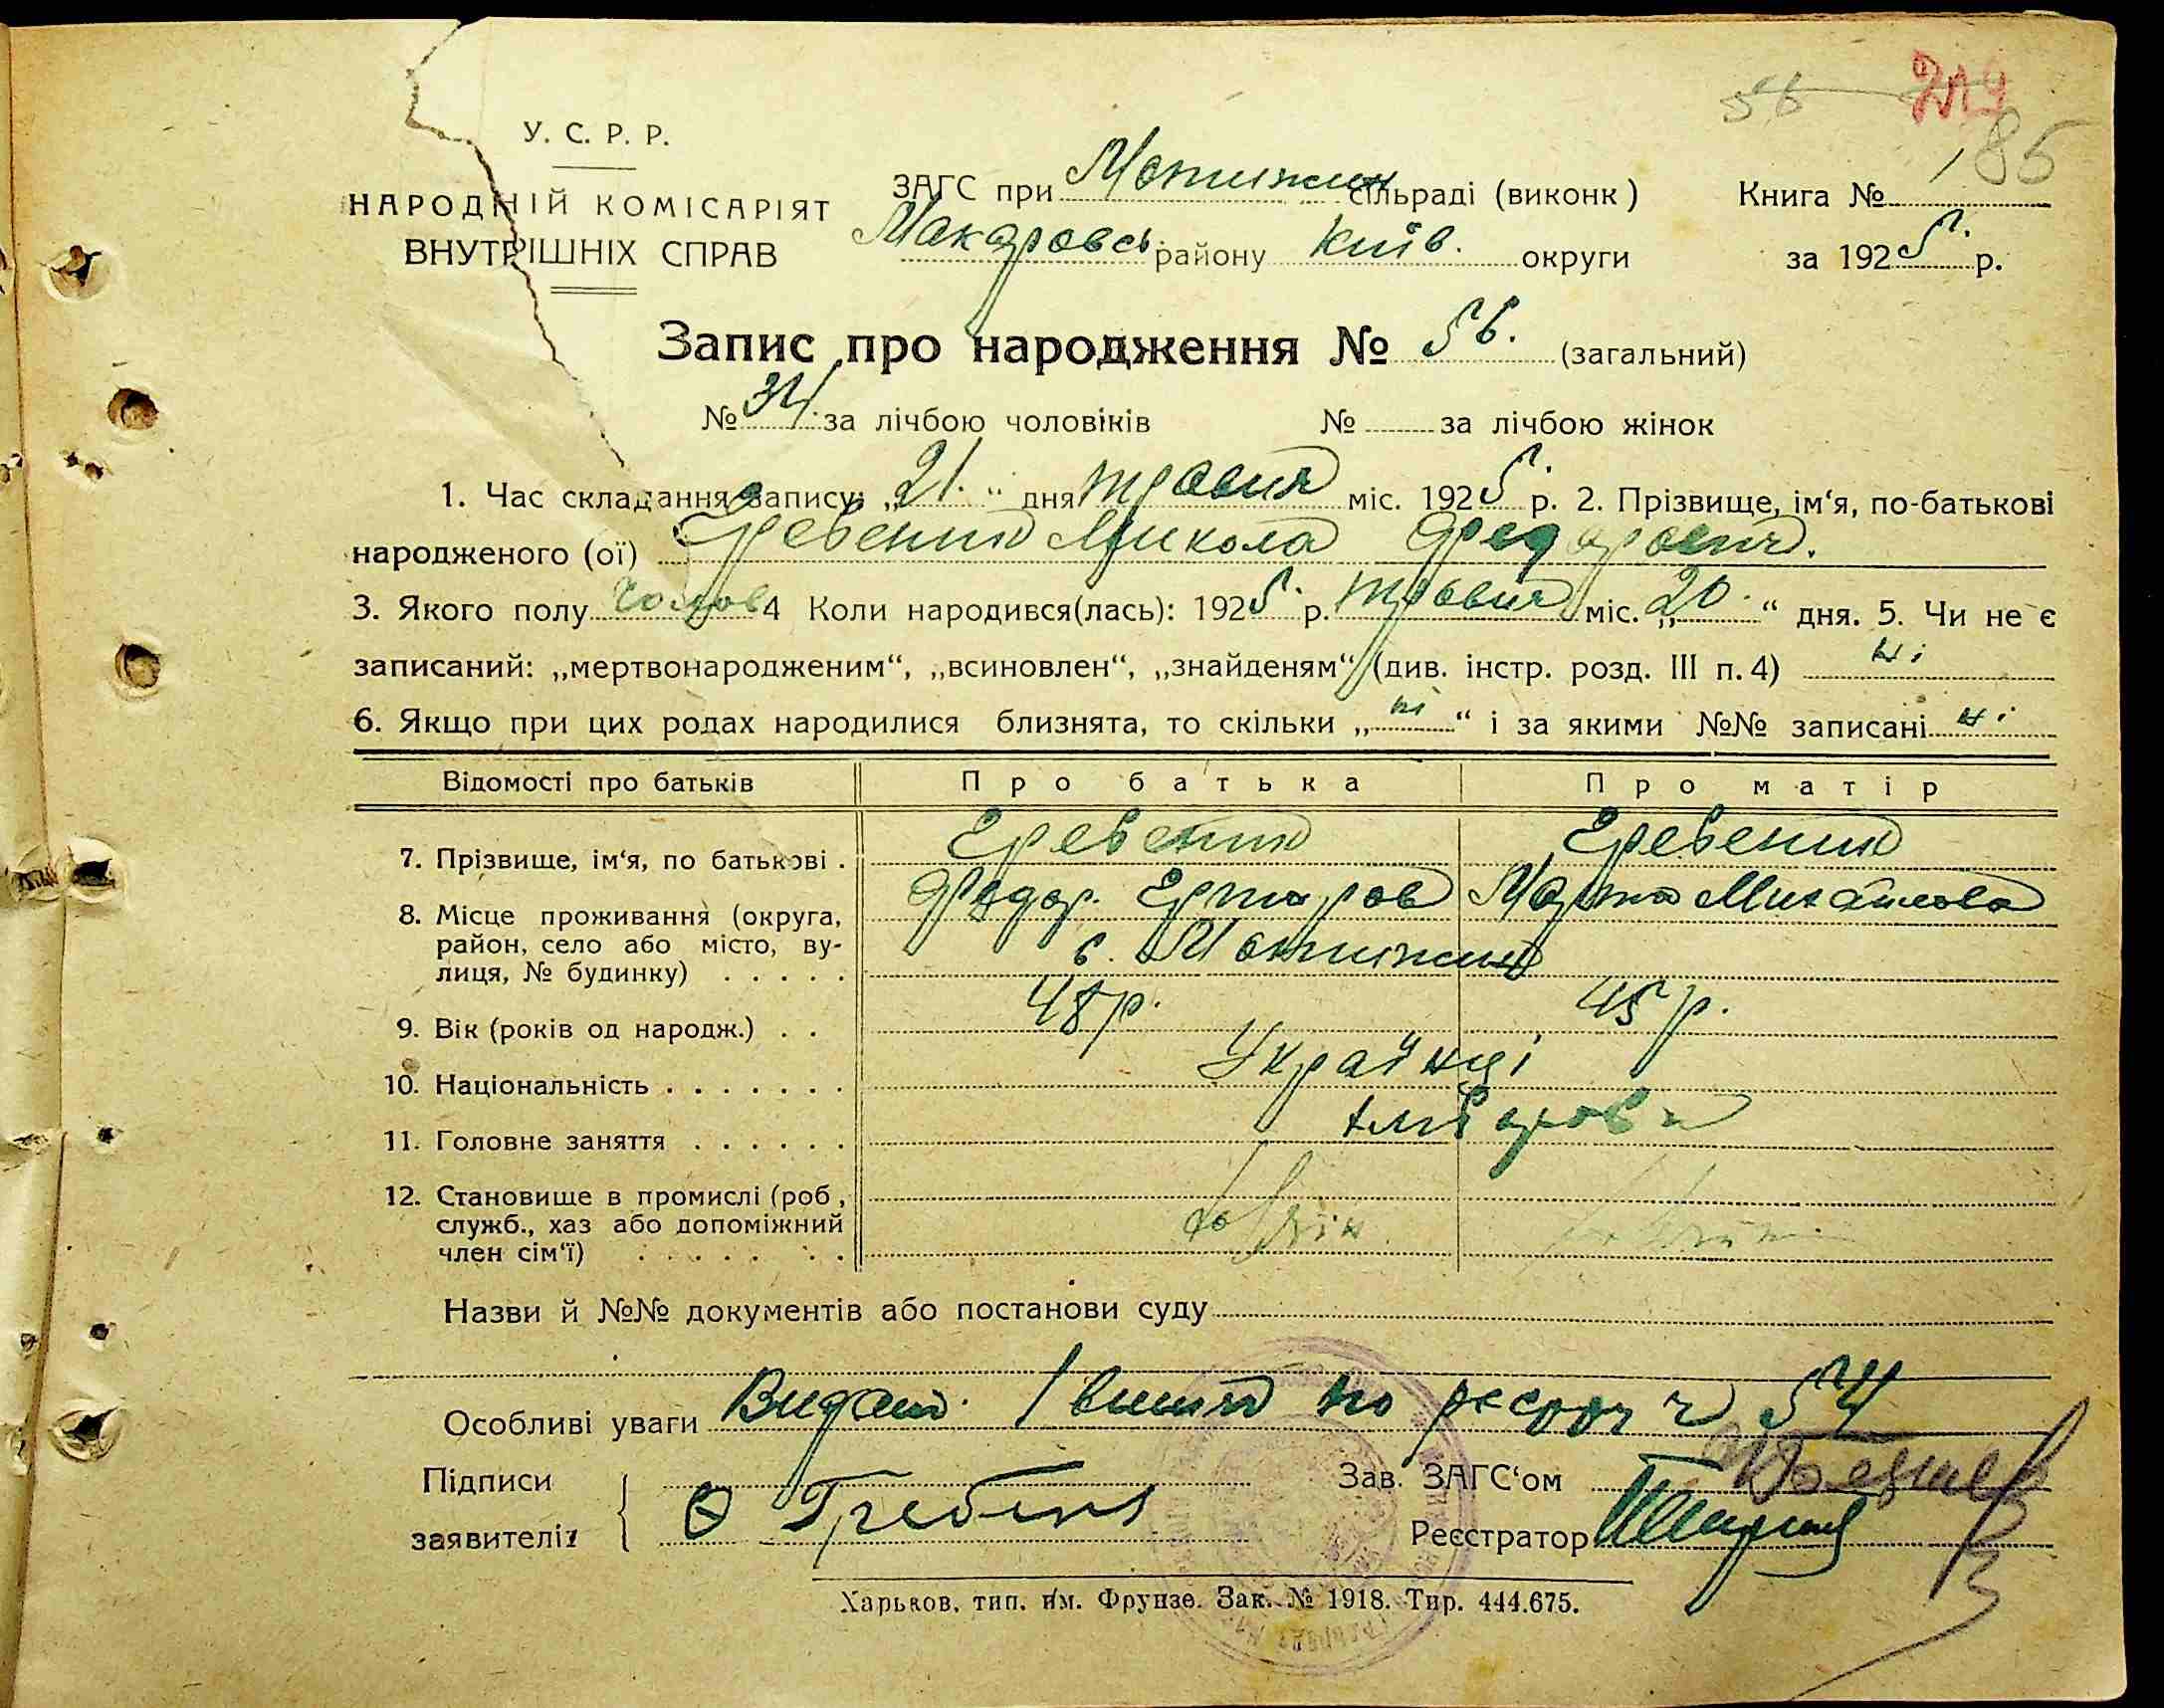 56 219
185
У. С. Р. Р.
НАРОДНІЙ КОМІСАРІЯТ
ВНУТРІШНІХ СПРАВ
ЗАГС при Мотижин сільраді (виконк) Книга №
Макаровсь району Київ. округи за 1925 р.
Запис про народження № 56. (загальний)
№ 34. за лічбою чоловіків № за лічбою жінок
1. Час складання запису: „21.“ дня травня міс. 1925 р. 2. Прізвище, ім‘я, по-батькові
народженого (ої) Гребеник Микола Федорович.
3. Якого полу чолов 4 Коли народився(лась): 1925 р. травня міс. „20.“ дня. 5. Чи не є
записаний: „мертвонародженим“, „всиновлен“, „знайденям“ (див. інстр. розд. III п. 4) ні
6. Якщо при цих родах народилися близнята, то скільки „ні“ і за якими №№ записані ні
Відомості про батьків Про батька Про матір
7. Прізвище, ім‘я, по батькові .
8. Місце проживання (округа,
район, село або місто, ву-
лиця, № будинку) . . . . .
Федор. Марта Михайлова
с. Мотижин
9. Вік (років од народж.) . . 48 р. 45 р.
10. Національність . . . . . . . Українці
11. Головне заняття . . . . . . хлібороби
12. Становище в промислі (роб,
служб., хаз або допоміжний
член сім‘ї) . . . . . . .
Назви й №№ документів або постанови суду
Особливі уваги Видан. 1 випис по реєстр 54
Підписи
заявителів Гребеня
Зав. ЗАГС‘ом
Реєстратор
Харьков, тип. им. Фрунзе. Зак. № 1918. Тир. 444.675.